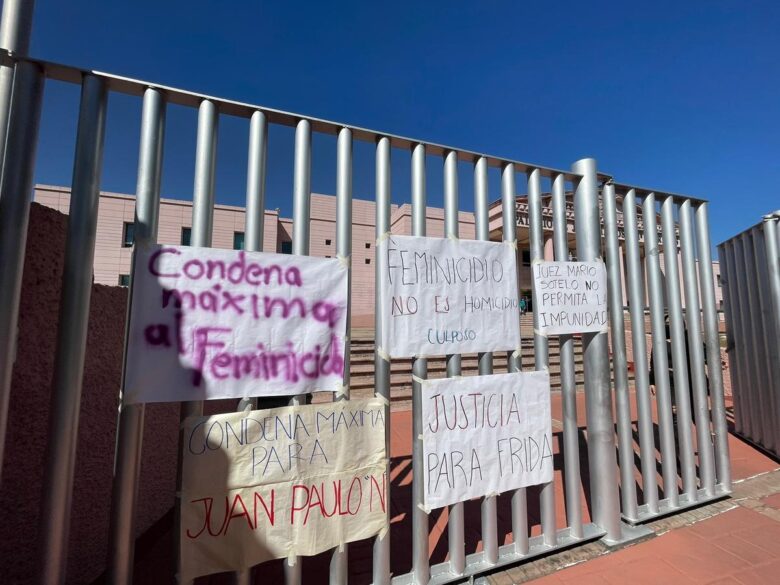 Condena
máxima
al Feminicida
FEMINICIDIO
NO ES HOMICIDIO
CULPOSO
JUEZ MARIO
SOTELO NO
PERMITA LA
IMPUNIDAD
CONDENA MÁXIMA
PARA
JUAN PAULO "N"
JUSTICIA
PARA FRIDA